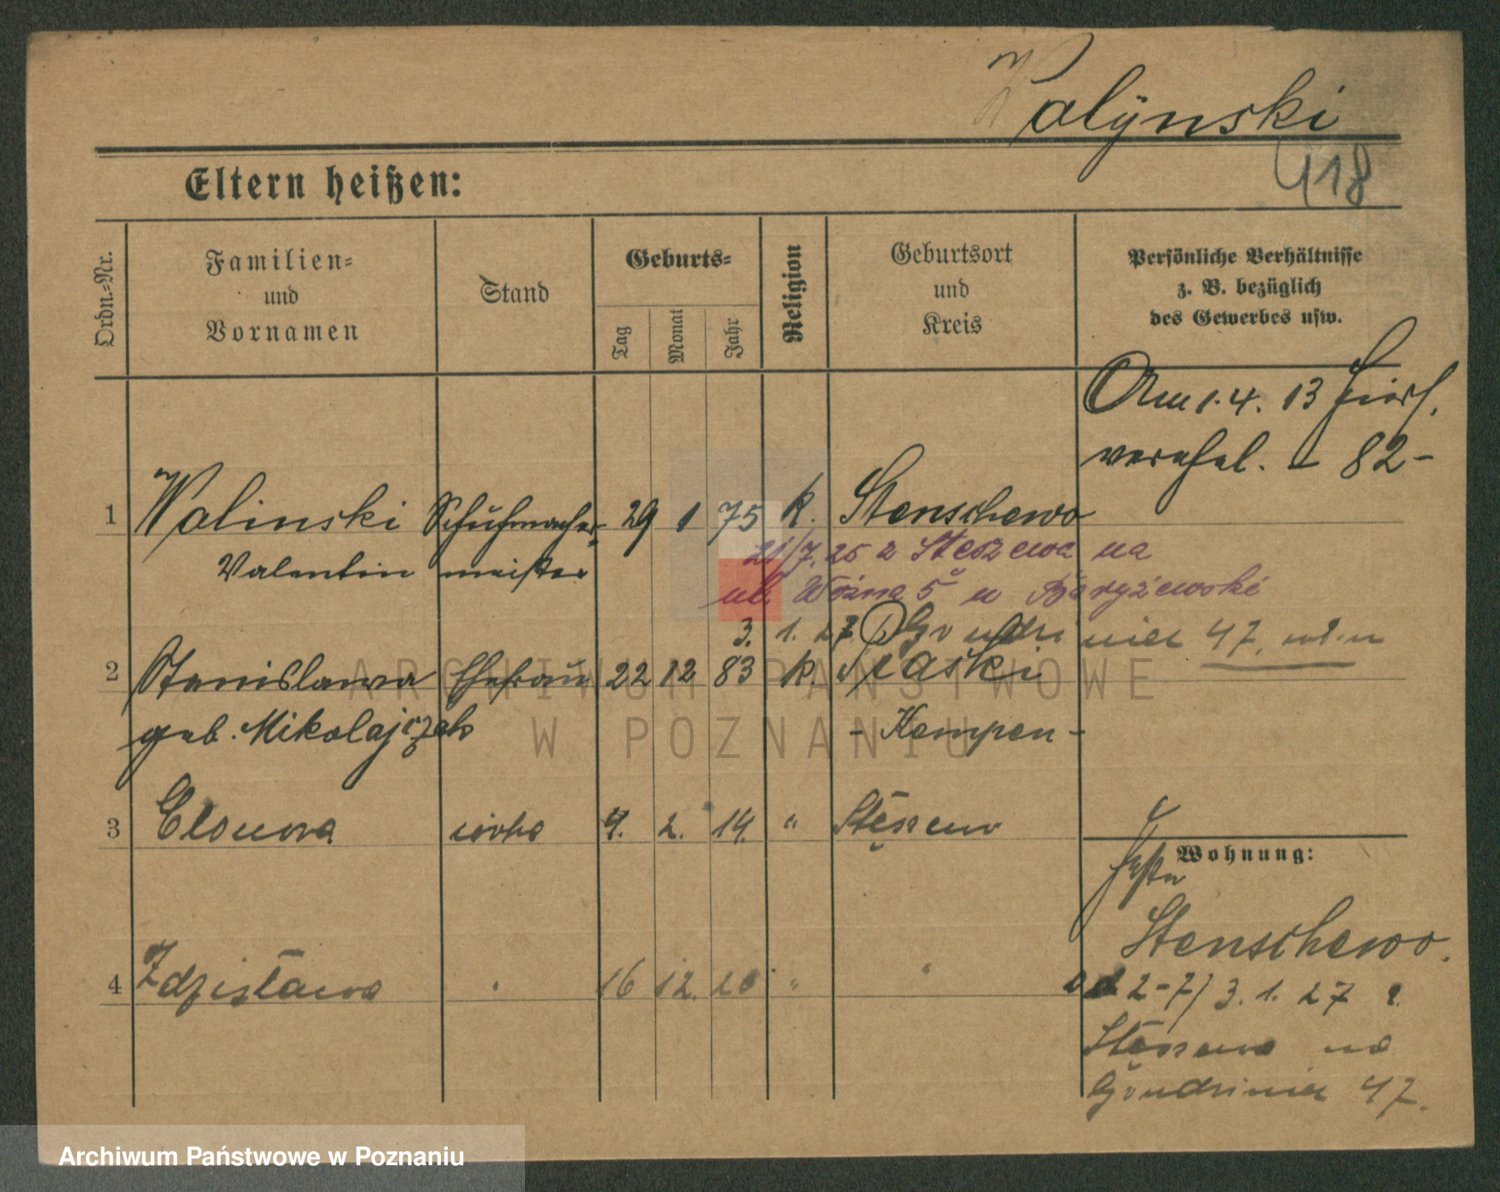 Walÿnski
418
Eltern heißen:
Ordn.=Nr.
Familien=
und
Vornamen
Stand
Geburts=
Tag
Monat
Jahr
Religion
Geburtsort
und
Kreis
Persönliche Verhältnisse
z. B. bezüglich
des Gewerbes usw.
Am 1. 4. 13 hier
verehel. - 82 -
1 Walinski Schuhmacher- 29 1 75 k. Stenschewo
Valentin meister
21/7. 25 z Stęszewa na
ul. Woźna 5 u
3. 1. 27
47.
2 Stanislawa Ehefrau 22 12 83 k.
geb. Mikolajczak - Kempen -
3 córka 4. 2. 14. " Stęszew
4 Zdzisława 16 12. "
Wohnung:
Stenschewo.
od 2-7) 3. 1. 27 z
Stęszewa na
47.
ARCHIWUM PAŃSTWOWE
W POZNANIU
Archiwum Państwowe w Poznaniu